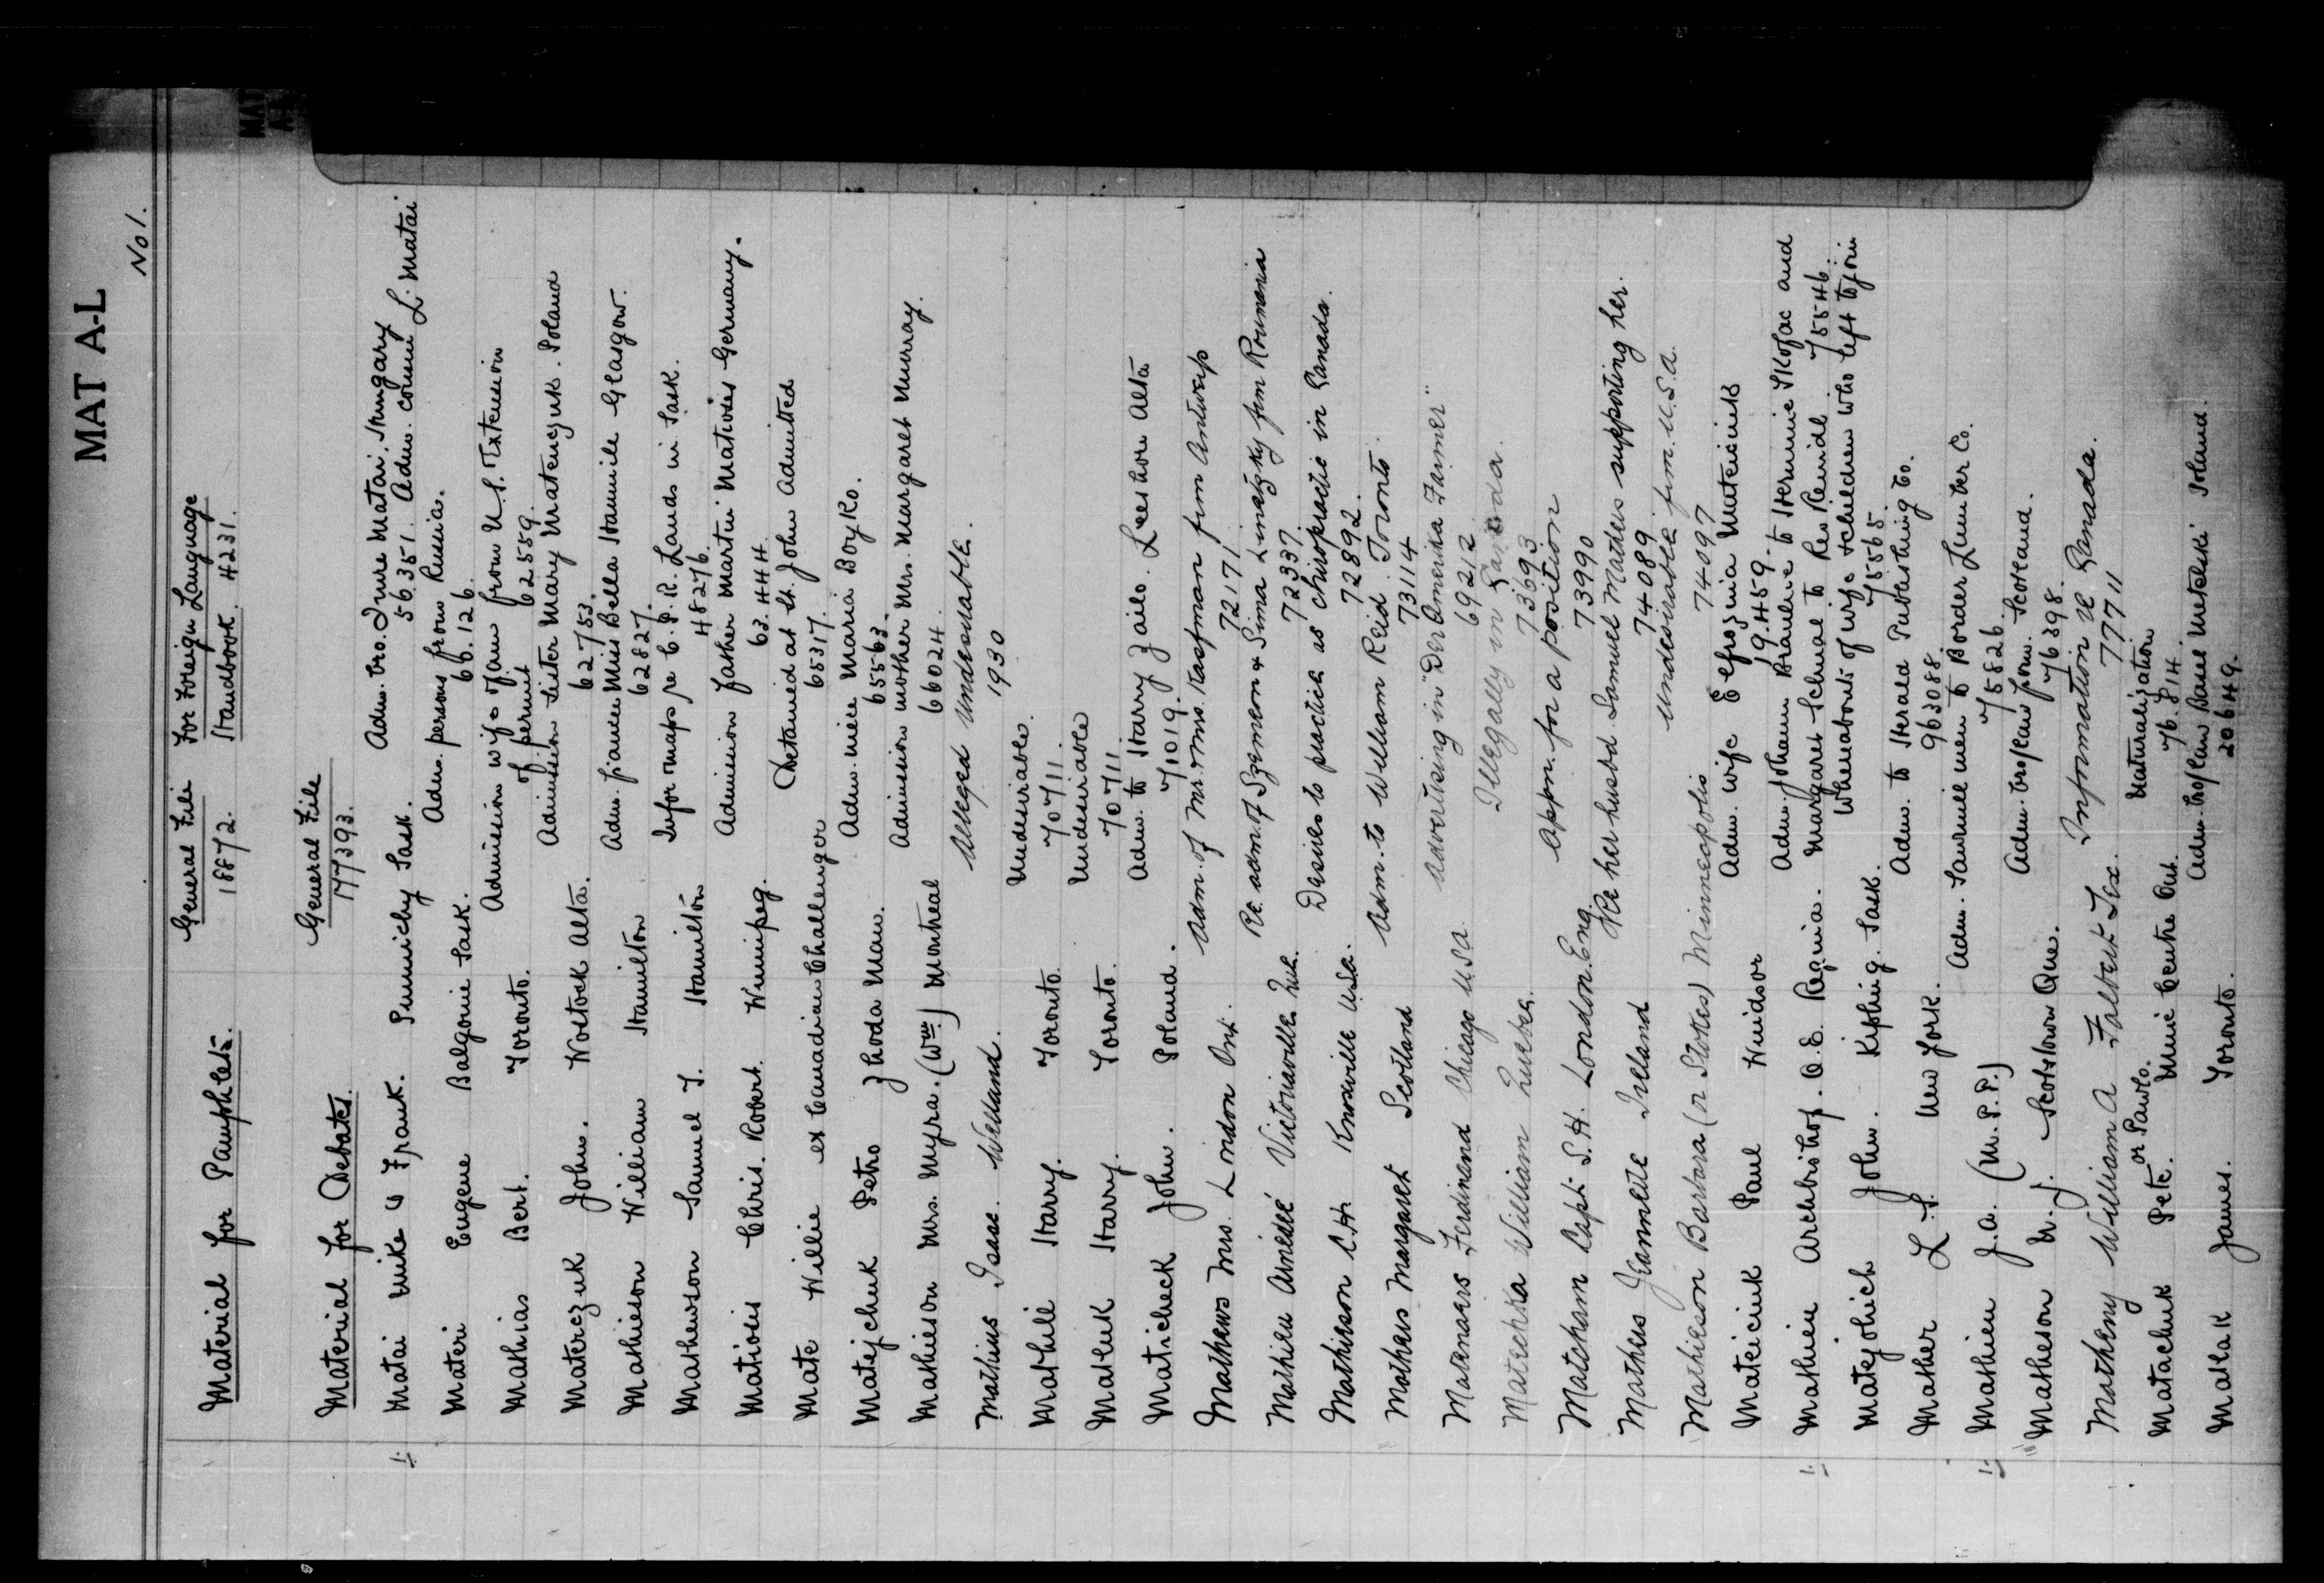 MAT A-L
No 1.
Material for Pamphlets. General File For Foreign Language
18872. Handbook. 4231.
Material for Debates. General File
177393.
Matai Mike & Frank. Punnichy Sask. Adm. bro. Imre Matai. Hungary
56351. Adm. cousin L. Matai
Materi Eugene Balgonie Sask. Adm. persons from Russia.
66.126.
Mathias Bert. Toronto. Admission wife & fam from U.S. Extension
of permit 62559.
Materczuk John. Wostock Alta. Admission sister Mary Matenczuk. Poland
62753.
Mathieson William Hamilton Adm. fiancee Miss Bella Hamill Glasgow.
62827.
Mathewson Samuel T. Hamilton Infor maps re C.P.R. Lands in Sask.
48276.
Matioeis Chris. Robert. Winnipeg. Admission father Martin Matioeis Germany.
63.444
Mate Willie ex Canadian Challenger Detained at St. John Admitted
65317.
Matejchuk Petro Zhoda Man. Adm. niece Maria Boyko.
65563.
Mathieson Mrs. Myra. (Wm) Montreal Admission mother Mrs. Margaret Murray.
66024.
Mathius Isaac. Welland. Alleged Undesirable.
1930
Mathill Harry. Toronto. Undesirable.
70711.
Mateuk Harry. Toronto. Undesirable
70711.
Maticheck John. Poland. Adm. to Harry Zailo. Leeshore Alta
71019.
Mathews Mrs. London Ont. Adm. of Mr. & Mrs. Kasfman from Antwerp
72171
Mathieu Amédée Victoriaville Que. Re. adm. of Szemeon & Sima Linetzky from Roumania
72337.
Mathieson C.H. Knoxville USA. Desires to practice as chiropractic in Canada.
72892.
Mathers Margaret Scotland Adm. to William Reid. Toronto.
73114
Maternaers Ferdinand Chicago U.S.A. Advertising in "Der Amerika Farmer"
69212
Matechka William Quebec. Illegally in Canada.
73693
Matcham Capt. S.H. London. Eng. Appn. for a position
73990
Mathers Jeannette Ireland Re her husbd Samuel Mathers supporting her.
74089
Mathieson Barbara (or Stokes) Minneapolis Undesirable from. U.S.A.
74097
Mateiciuk Paul Windsor Adm. wife Eefrozinia Mateiciuk
19.459.
Mathieu Archbishop. O.E. Regina. Adm. Johann Braulive to Hermine Skofac and
Margaret Schual to Rev Reidl 75546.
Matejovich John. Kipling. Sask. Whereabouts of wife & children who left to join
75565.
Mather L.S. New York. Adm. to Herald Publishing Co.
963088.
Mathieu J.A. (M.P.P.) Adm. Sawmill men to Border Lumber Co.
75826.
Matheson M.J. Scotstown Que. Adm. bro/law from. Scotland.
76398.
Matheny William A Falbert Tex. Information re Canada.
77711
Matachuk Pete. or Pawlo. Mine Centre Ont. Naturalization
76.814.
Matlak James. Toronto. Adm. bro/law Pawel Mitelski Poland.
20649.